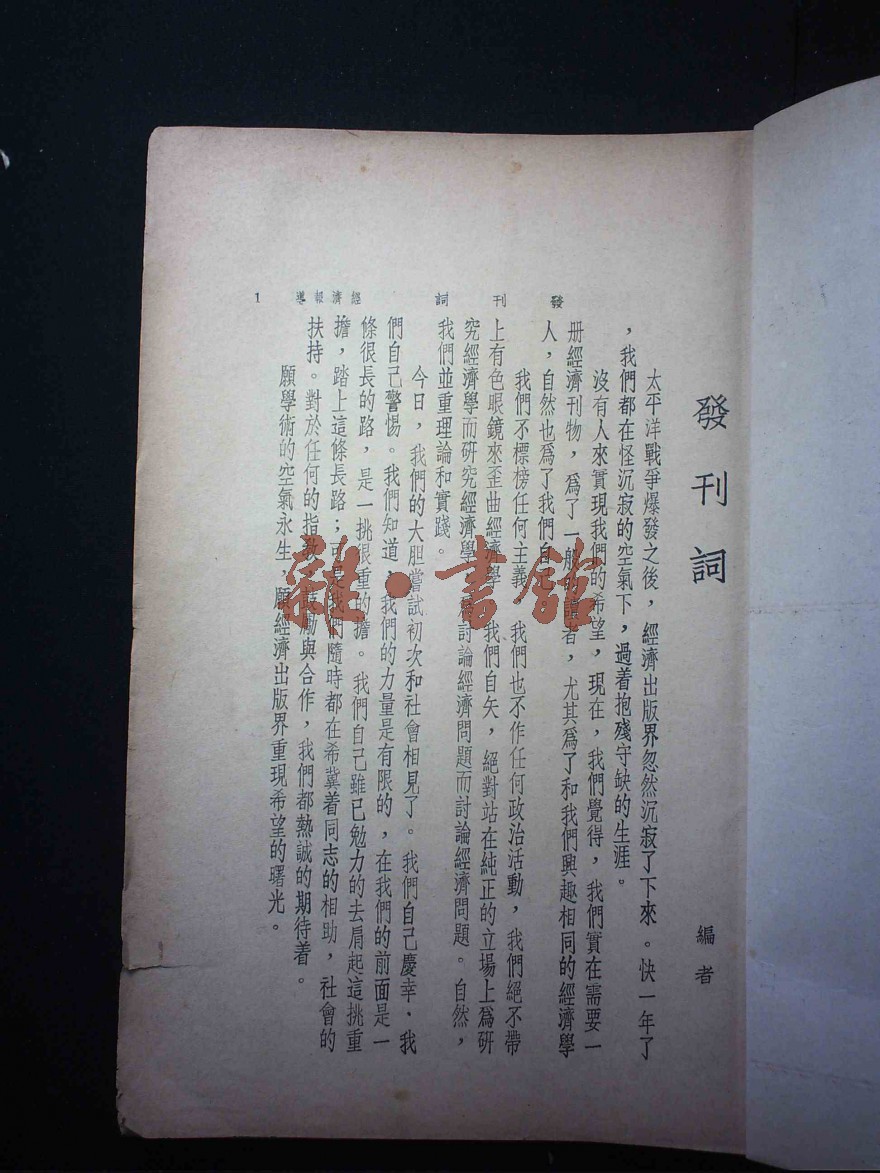 發刊詞
編者
太平洋戰爭爆發之後，經濟出版界忽然沉寂了下來。快一年了
，我們都在怪沉寂的空氣下，過着抱殘守缺的生涯。
沒有人來實現我們的希望，現在，我們覺得，我們實在需要一
册經濟刊物，爲了一般的讀者，尤其爲了和我們興趣相同的經濟學
人，自然也爲了我們自己。
我們不標榜任何主義，我們也不作任何政治活動，我們絕不帶
上有色眼鏡來歪曲經濟學，我們自矢，絕對站在純正的立場上爲研
究經濟學而研究經濟學，爲討論經濟問題而討論經濟問題。自然，
我們並重理論和實踐。
今日，我們的大胆嘗試初次和社會相見了。我們自己慶幸，我
們自己警惕。我們知道，我們的力量是有限的，在我們的前面是一
條很長的路，是一挑很重的擔。我們自己雖已勉力的去肩起這挑重
擔，踏上這條長路；可是我們隨時都在希冀着同志的相助，社會的
扶持。對於任何的指教，鼓勵與合作，我們都熱誠的期待着。
願學術的空氣永生，願經濟出版界重現希望的曙光。
發刊詞
經濟報導
1
雜·書館